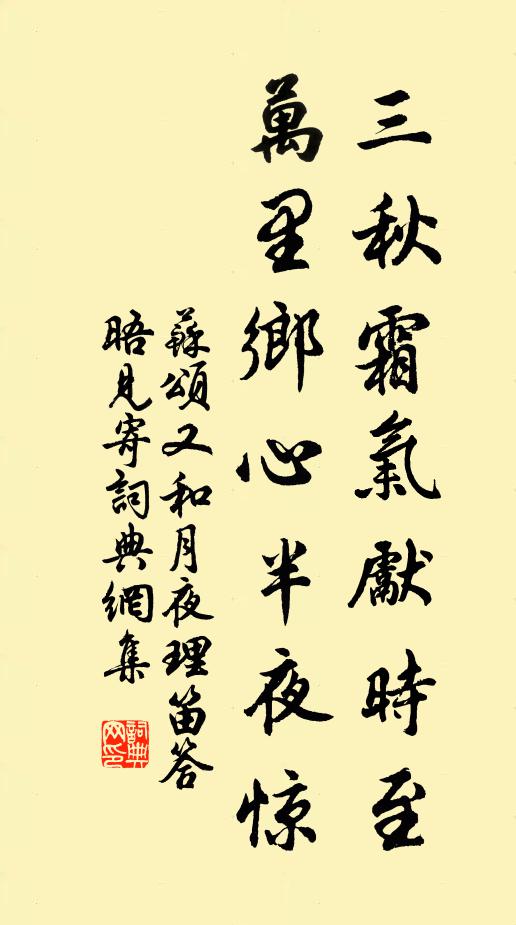 三秋霜氣獻時至
萬里鄉心半夜惊
蘇頌又和月夜理笛答
晤見寄詞典網集
詞典网印